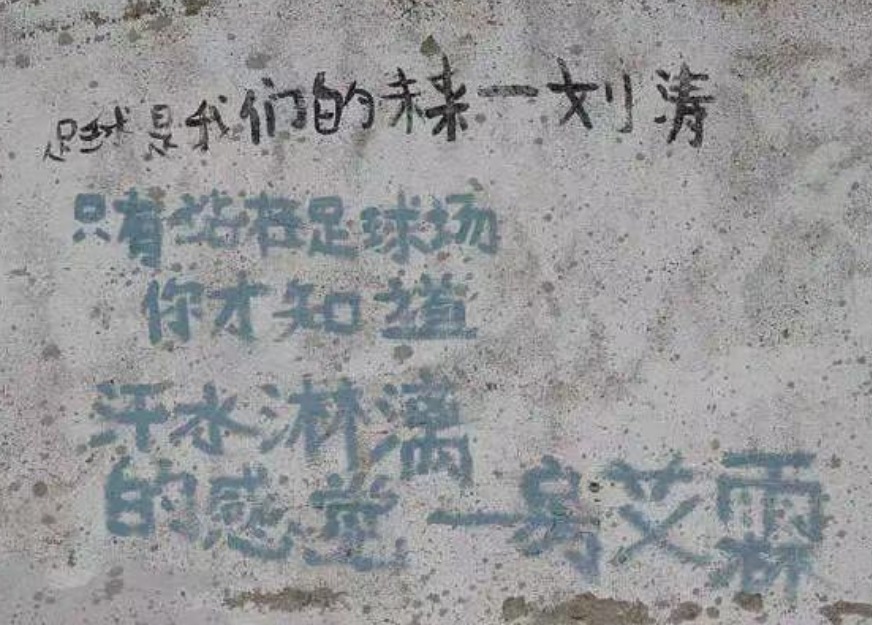 足球是我们的未来一刘涛
只有站在足球场
你才知道
汗水淋漓
的感觉一房艾霖